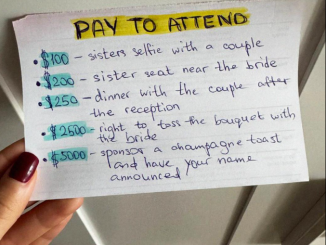 PAY TO ATTEND
• $100 – sisters selfie with a couple
• $200 – sister seat near the bride
• $250 – dinner with the couple after
the reception
• $2600 – right to toss the bouquet with
the bride
• $5000 – sponsor a champagne toast
and have your name
announced